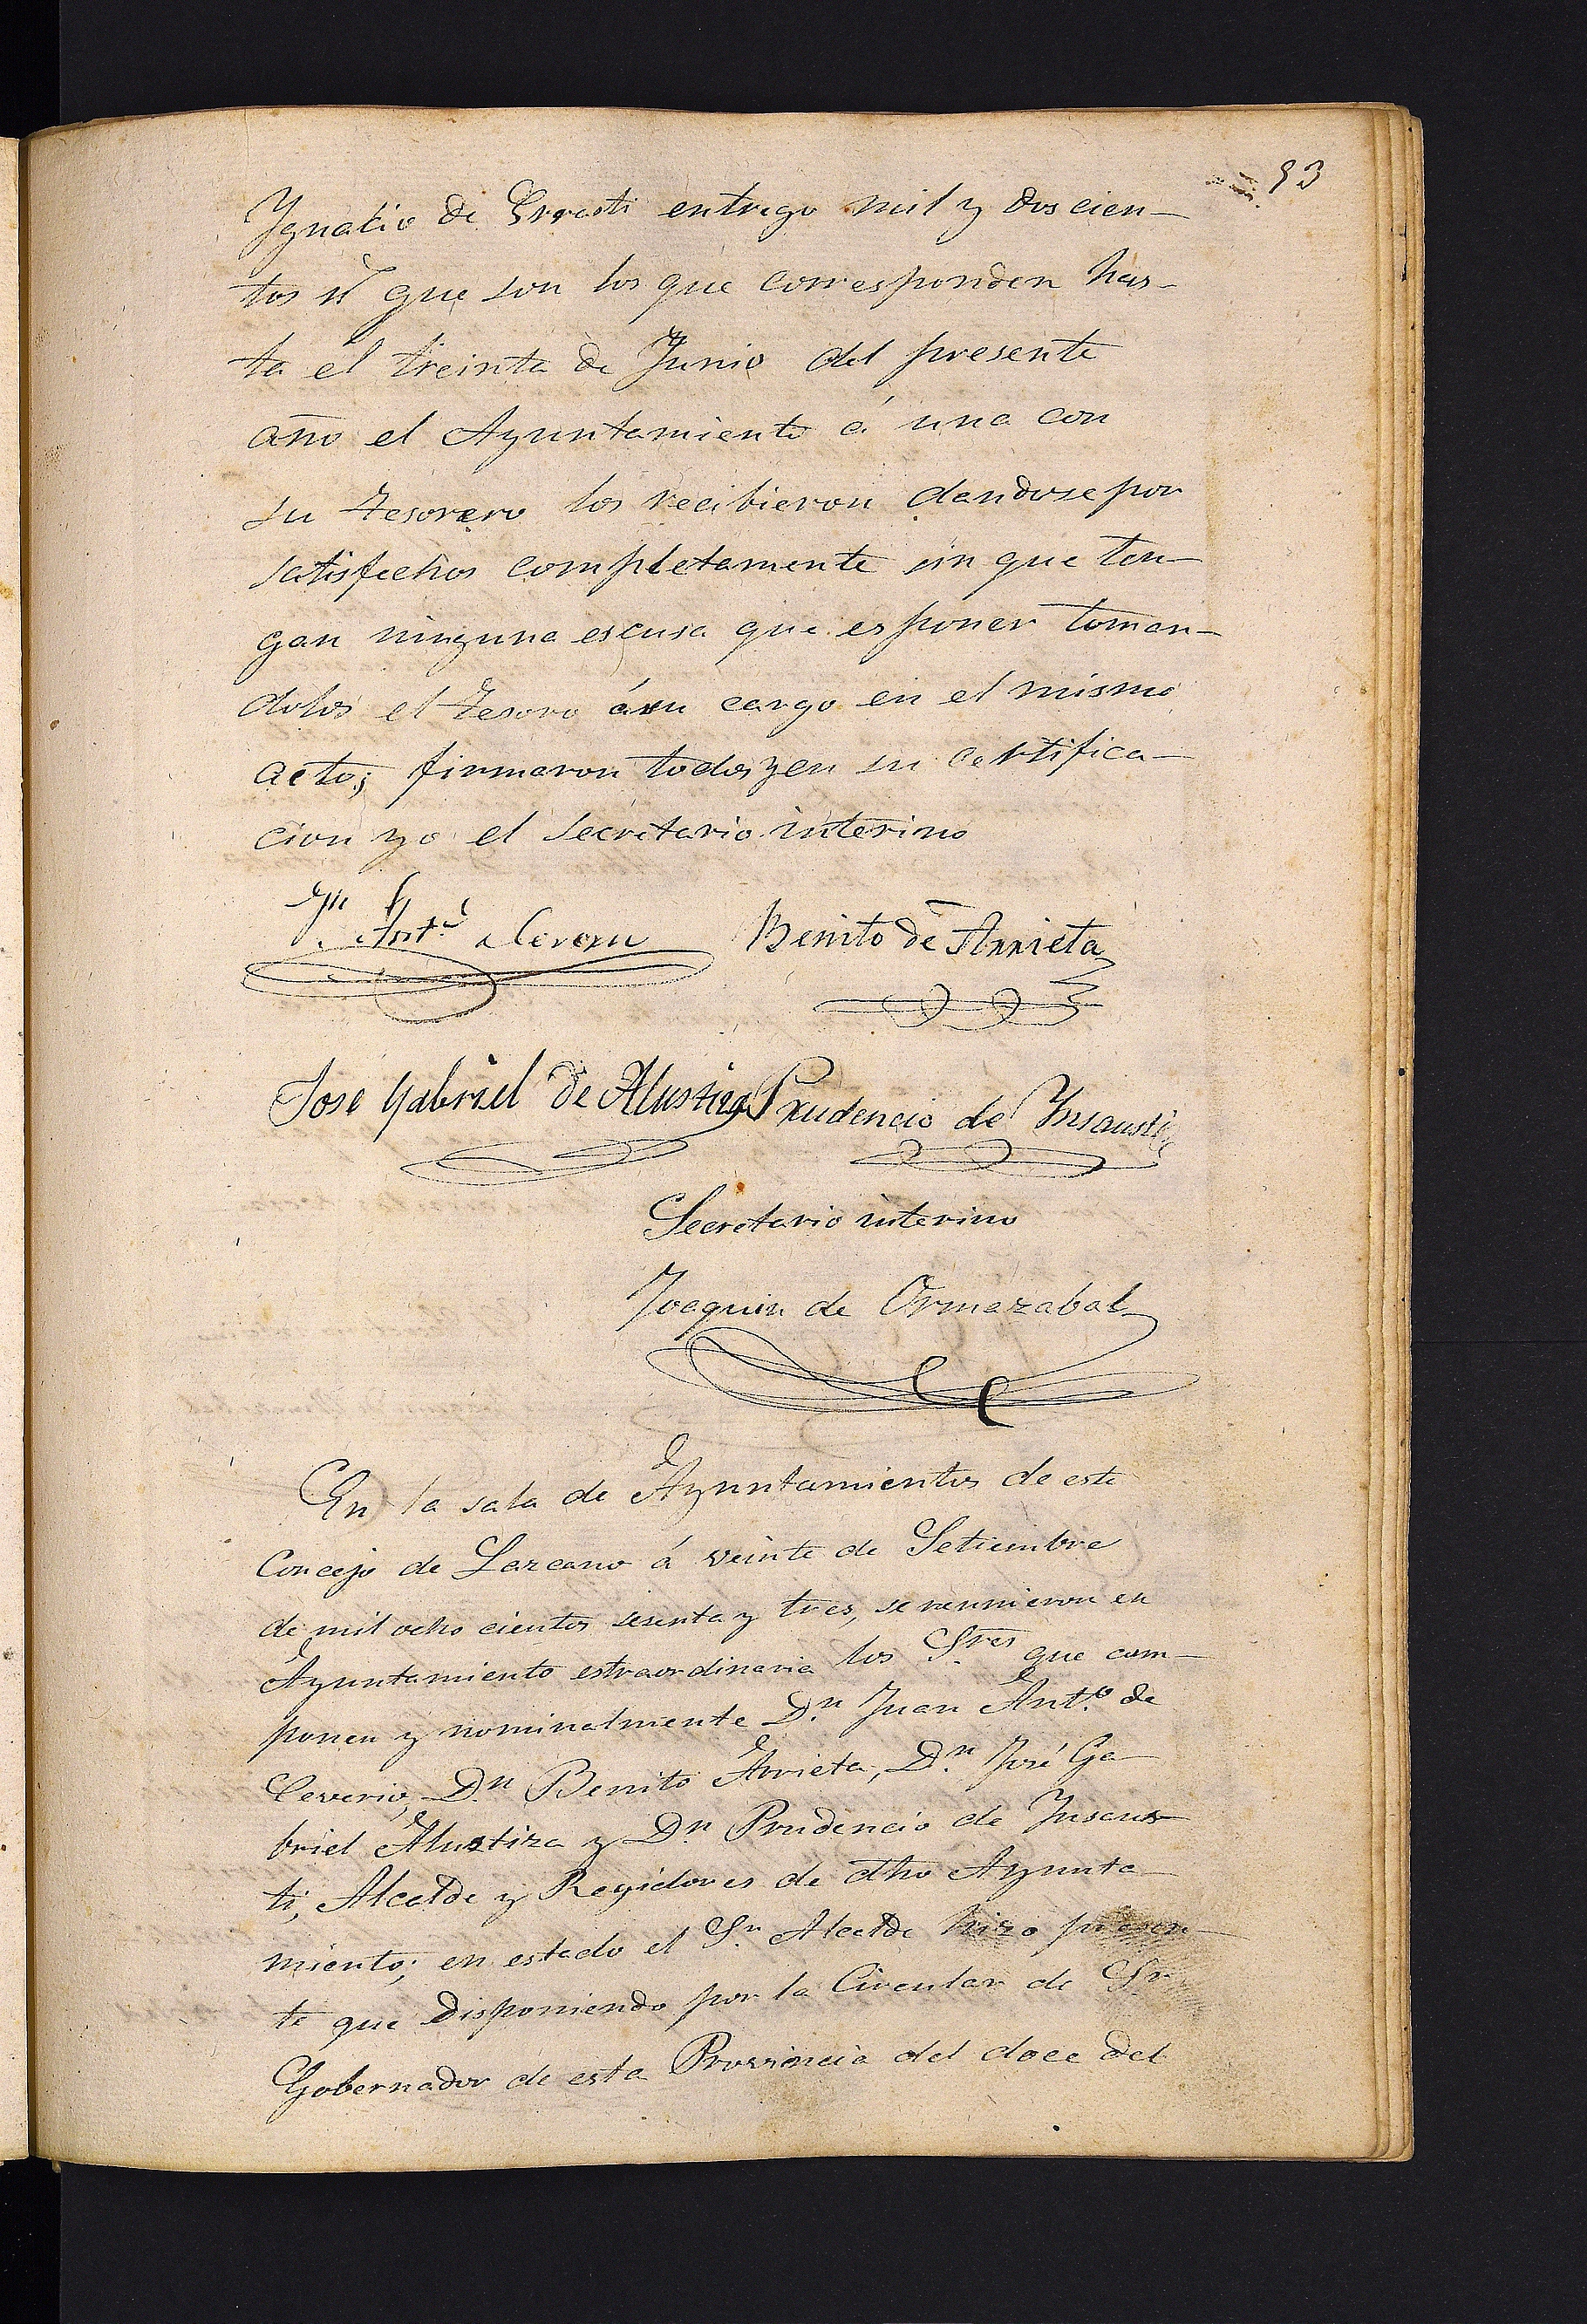 93
Ygnacio de Errasti entrego mil y doscien-
tos rˢ que son los que corresponden has-
ta el treinta de Junio del presente
año el Ayuntamiento á una con
su tesorero los recibieron dandose por
satisfechos completamente sin que ten-
gan ninguna escusa que esponer toman-
dolos el tesoro ásu cargo en el mismo
acto; firmaron todos y en su certifica-
cion yo el secretario interino
Jn Antº Benito de Arrieta
José Gabriel de Alustiza Prudencio de Ynsausti
Secretario interino
Joaquin de Ormazabal
En la sala de Ayuntamientos de este
Concejo de Lazcano á veinte de Setiembre
de mil ocho cientos sesenta y tres, se reunieron en
Ayuntamiento estraordinaria los S.res que com-
ponen y nominalmente D.n Juan Ant.o de
Ceverio, D.n Benito Arrieta, D.n José Ga-
briel Alustiza y D.n Prudencio de Ynsaus-
ti, Alcalde y Regidores de dho Ayunta-
miento; en estado el S.r Alcalde hizo presen-
te que disponiendo por la Circular de Sr
Gobernador de esta Provincia del doce del